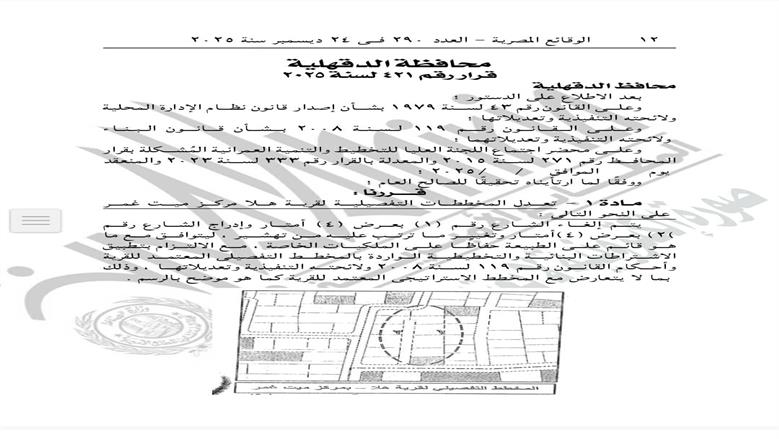 ١٢ الوقائع المصرية – العدد ٢٩٠ فى ٢٤ ديسمبر سنة ٢٠٢٥
محافظة الدقهلية
قرار رقم ٤٢١ لسنة ٢٠٢٥
محافظ الدقهلية
بعد الاطلاع على الدستور ؛
وعلى القانون رقم ٤٣ لسنة ١٩٧٩ بشأن إصدار قانون نظام الإدارة المحلية
ولائحته التنفيذية وتعديلاتها ؛
وعلى القانون رقم ١١٩ لسنة ٢٠٠٨ بشأن قانون البناء
ولائحته التنفيذية وتعديلاتهما ؛
وعلى محضر اجتماع اللجنة العليا للتخطيط والتنمية العمرانية المُشكلة بقرار
المحافظ رقم ٢٧١ لسنة ٢٠١٥ والمعدلة بالقرار رقم ٣٣٣ لسنة ٢٠٢٣ والمنعقد
يوم الموافق / / ٢٠٢٥ ؛
ووفقًا لما ارتأيناه تحقيقًا للصالح العام ؛
قررنا :
مادة ١ – تعدل المخططات التفصيلية لقرية هلا مركز ميت غمر
على النحو التالى :
يتم إلغاء الشارع رقم (١) بعرض (٤) أمتار وإدراج الشارع رقم
(٢) بعرض (٤) أمتار وتعديل ما ترتب عليه من تهشير ، ليتوافق مع ما
هو قائم على الطبيعة حفاظًا على الملكيات الخاصة ، مع الالتزام بتطبيق
الاشتراطات البنائية والتخطيطية الواردة بالمخطط التفصيلى المعتمد للقرية
وأحكام القانون رقم ١١٩ لسنة ٢٠٠٨ ولائحته التنفيذية وتعديلاتها ، وذلك
بما لا يتعارض مع المخطط الاستراتيجى المعتمد للقرية كما هو موضح بالرسم .
المخطط التفصيلى لقرية هلا – بمركز ميت غمر